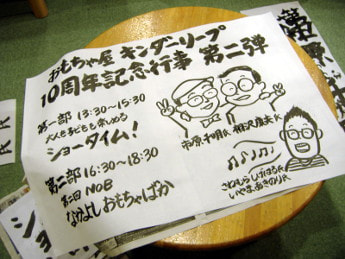 おもちゃ屋 キンダーリープ
10周年記念行事 第二弾
第一部 13:30~15:30
大人も子どもも楽しめる
ショータイム!
第二部 16:30~18:30
第二回 NOB
なかよしおもちゃばか
市原 和明K 相沢康夫K
さわむら しげはるK
いやま、あきのりK